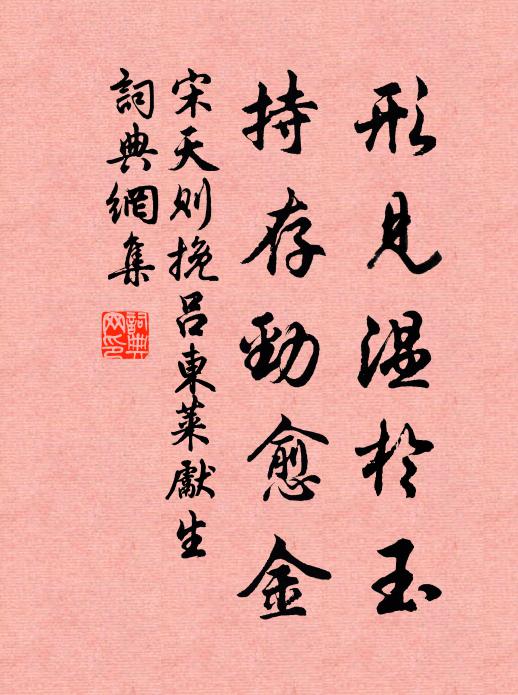 形見温於玉
持存勁愈金
宋天則挽呂東萊獻生
詞典網集
詞典
网印